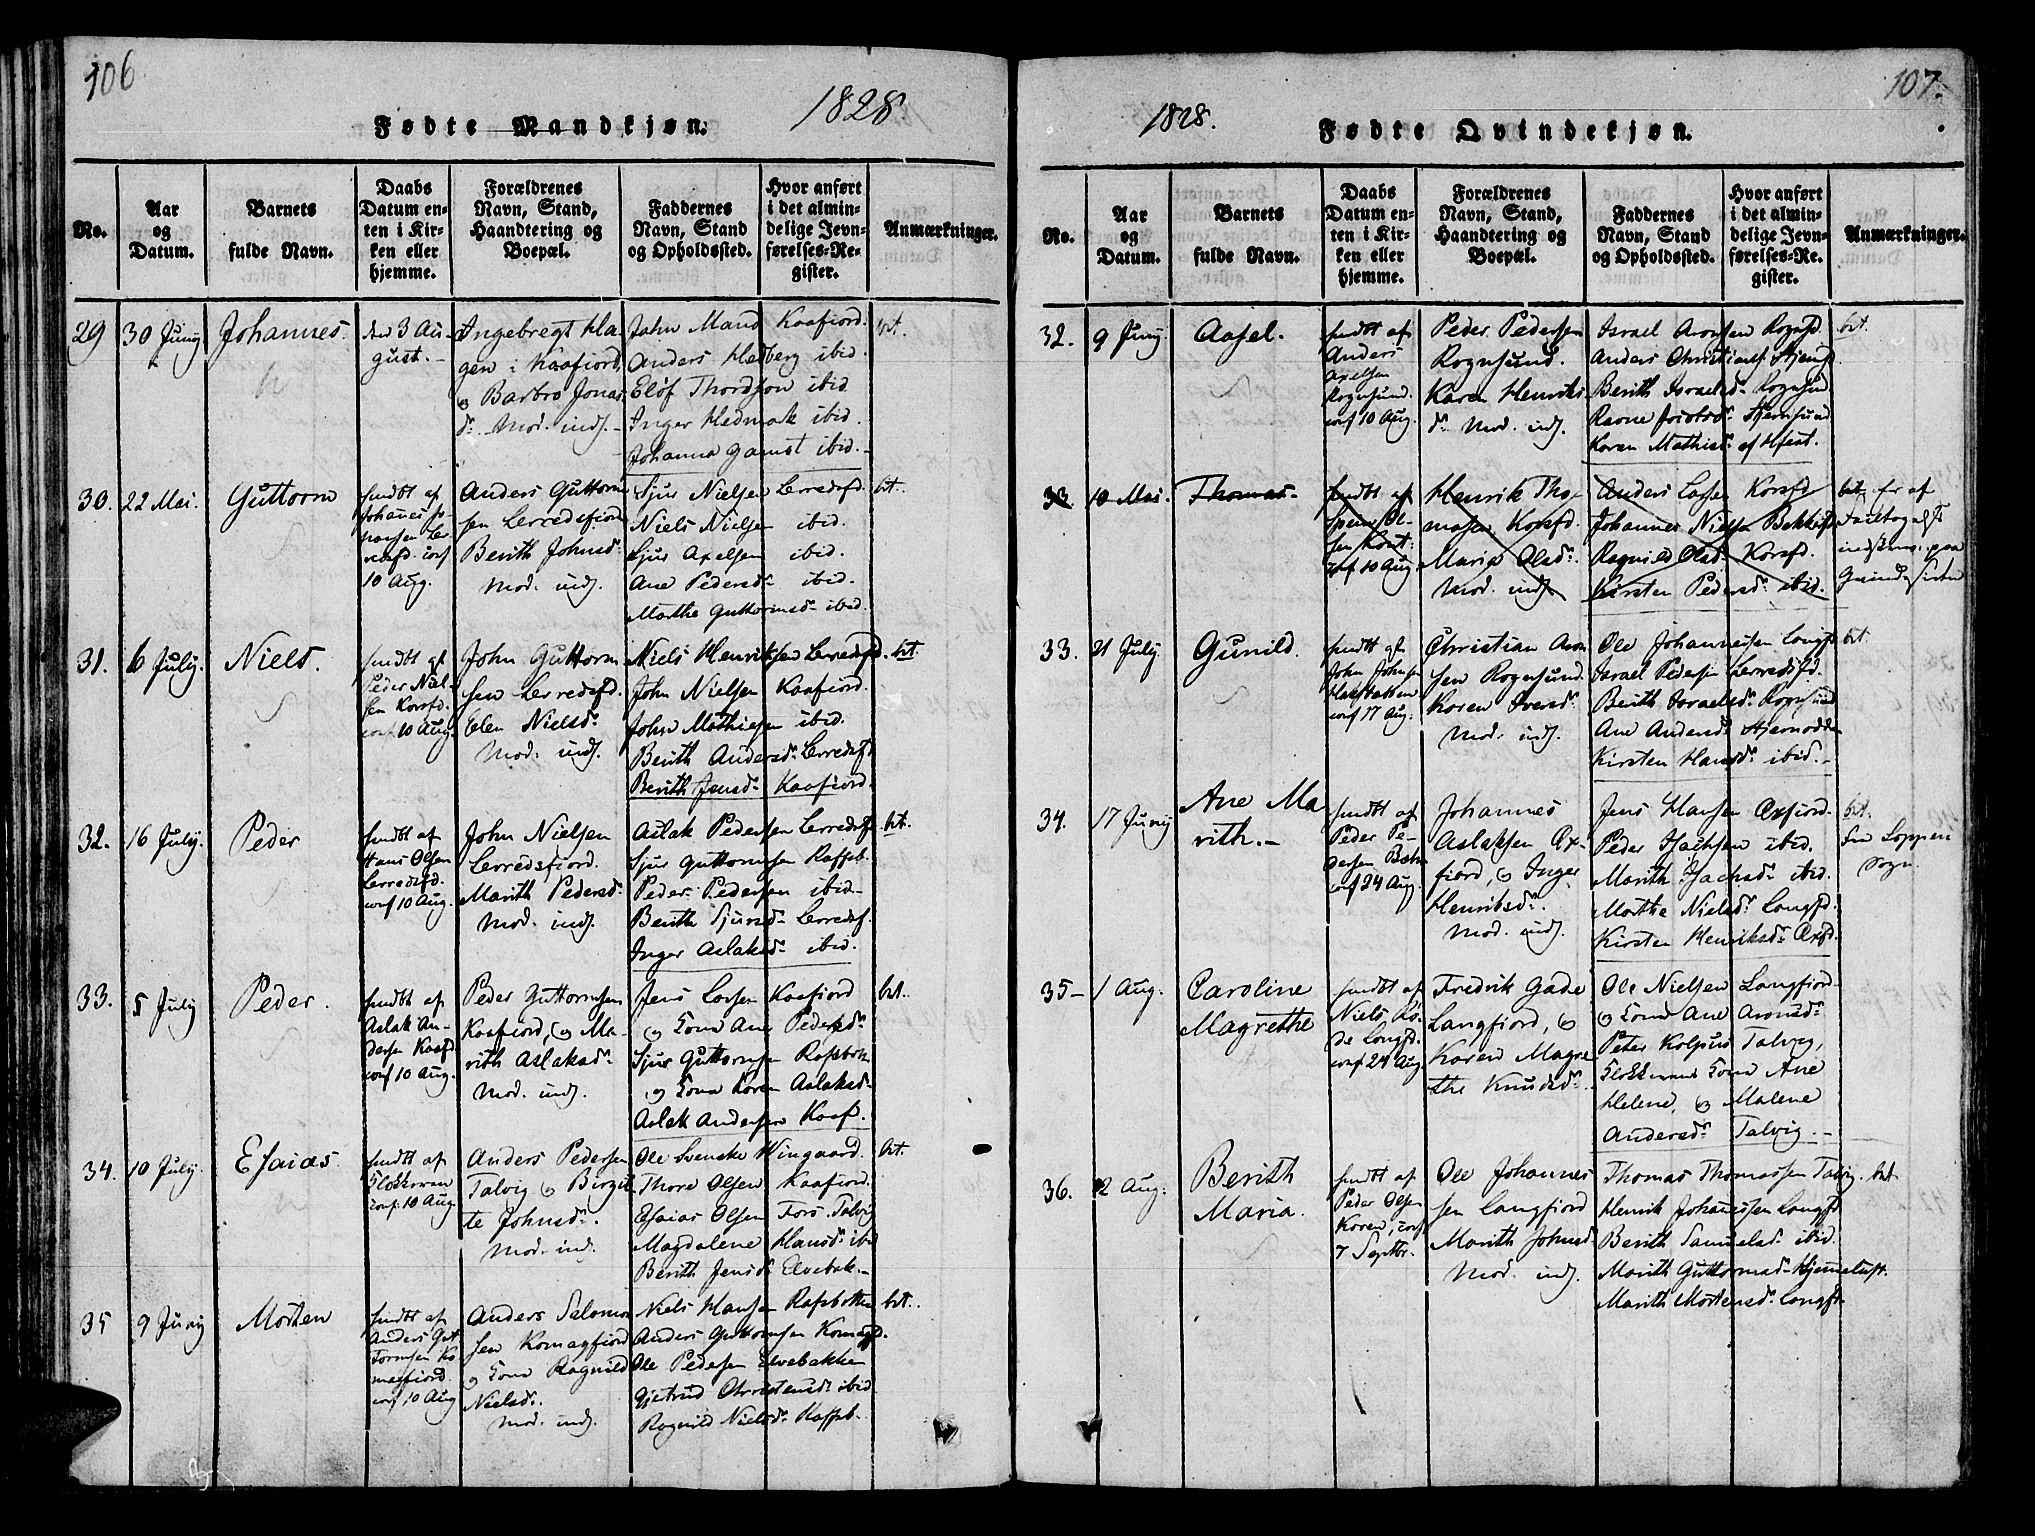 106
1828.
Fødte Mandkjøn.
No.
Aar og Datum.
Barnets fulde Navn.
Daabs Datum enten i Kirken eller hjemme.
Forældrenes Navn, Stand, Haandtering og Boepæl.
Faddernes Navn, Stand og Opholdssted.
Hvor anført i det almindelige Jevnførelses-Register.
Anmærkninger.
29
30 Juny
Johannes.
den 3 Au-
gust.-
Ingebregt Ha-
gen i Kaafiord,
og Barbro Jonas
dr. Mod. indf.
John Mand Kaafiord.
Anders Hedberg ibid.
Elöf Thordson ibid
Inger Hedmark ibid.
Johanna Gamst ibid.
bet.
30.
22 Mai.
Guttorm
hmdbt af
Johanes Jo-
hansen Ler-
redsfd. conf
10 Aug.
Anders Guttorm
sen Lerredsfiord
Berith Johnsdr.
Mod. indf.
Sjur Nielsen Lerredsfd.
Niels Nielsen ibid.
Sjur Axelsen ibid.
Ane Pedersdr. ibid.
Marthe Guttormsdr. ibid.
bet.
31.
6 July.
Niels.
hmdbt af
Peder Niel-
sen Korsfd.
conf 10 Aug.
John Guttorm
sen Lerredsfd.
Elen Nielsdr.
Mod. indf.
Niels Henriksen Lerredsfd.
John Nielsen Kaafiord.
John Mathiesen ibid.
Berith Andersdr. Lerredsfd
Berith Jensdr. Kaafiord.
bet.
32.
16 July.
Peder
hmdbt af
Hans Olsen
Lerredsfd.
conf 10 Aug.
John Nielsen
Lerredsfiord.
Marith Pedersdr.
Mod. indf.
Aslak Pedersen Lerredsf
Sjur Guttormsen Raffsb.
Peder Pedersen ibid.
Berith Sjursdr. Lerredsf.
Inger Aslaksdr. ibid.
bet.
33.
5 July
Peder.
hmdbt af
Aslak An-
dersen Kaafd.
conf 10 Aug.
Peder Guttormsen
Kaafiord, og Ma-
rith Aslaksdr.
Mod. indf.
Jens Larsen Kaafiord
og Kone Ane Pedersdr.
Sjur Guttormsen Rafsbotn
og Kone Karen Aslaksdr.
Aslak Andersen Kaaf.
bet.
34.
10 July.
Esaias
hmdbt af
Klokkeren
conf. 10 Aug.
Anders Pedersen
Talvig og Birgit-
te Johnsdr.
Mod. ind.
Ole Svenske Wingaard.
Thore Olsen Kaafiord.
Esaias Olsen Fors. Talvig
Magdalene Hansdr. ibid
Berith Jensdr. Elvebak.
bet.
35
9 Juny
Morten
hmdbt af
Anders Gut
tormsen Ko
magfiord.
conf 10 Aug
Anders Salomon
sen Komagfiord
og Kone Ragnild
Nielsdr.
Mod. indf.
Niels Hansen Rafsbotten
Anders Guttormsen Komagfd.
Ole Pedersen Elvebakken
Gjetrud Christensdr. ibid
Ragnild Nielsdr. Raffsb.
bet.
107.
1828.
Fødte Qvindekjøn.
No.
Aar og Datum.
Barnets fulde Navn.
Daabs Datum enten i Kirken eller hjemme.
Forældrenes Navn, Stand, Haandtering og Boepæl.
Faddernes Navn, Stand og Opholdssted.
Hvor anført i det almindelige Jevnførelses-Register.
Anmærkninger.
32.
9 Juny
Aasel.
hmdbt af
Anders
Axelsen
Rognsund.
conf 10 Aug.
Peder Pedersen
Rognsund.
Karen Henriks
dr. Mod. indf.
Israel Aronsen Rognsd.
Anders Christians. Stjerns
Berith Israelsdr. Rognsund
Karen Mathisdr. af Hfest.
bet.
33
10 Mai.
Thomas.
hmdbt af
conf 10 Aug
Henrik Tho-
masen Korsfd.
Maria Olsdr.
Mod. indf
Anders Larsen Korsfd
Johannes Nielsen
Ragnild Olsdr. Korsfd.
Kirsten Pedersdr. ibid.
33.
21 July
Gunild.
hmdbt af
John Johnsen
conf 17 Aug.
Christian Aron
sen Rognsund.
Karen Iversdr.
Mod. indf.
Ole Johannessen Langfd
Israel Pedersen Lerredsfd.
Berith Israelsdr. Rognsund
Ane Andersdr. Stjernodden
Kirsten Hansdr. ibid.
bet.
34.
17 Juny
Ane Ma
rith.-
hmdbt af
Peder Pe-
dersen
conf 24 Aug.
Johannes
Aslaksen Ox-
fiord, og Inger
Henriksdr.
Mod. indf.
Jens Hansen Oxfiord.
Peder Isachsen ibid.
Marith Isachsdr. ibid.
Marthe Nielsdr. Langfd.
Kirsten Henriksdr. Oxfd.
bet.
fra Loppen
Sogn.
35
1 Aug.
Caroline
Magrethe
hmdbt af
Niels Ga-
de Langfd.
conf. 24 Aug.
Fredrik Gade
Langfiord, og
Karen Magre
the Knudsdr.
Ole Nielsen Langfiord
og Kone Ane Aronsdr.
Peter Kolpus Talvig,
Klokkerens Kone Ane
Helene, og Malene
Andersdr. Talvig.
36.
12 Aug.
Berith
Maria.
hmdbt af
Peder Olsen
Koren, conf
7 Septbr.
Ole Johannes
sen Langfiord
Marith Johnsdr
Mod. indf.
Thomas Thomassen Talvig.
Henrik Johannessen Langfd
Berith Samuelsdr. ibid.
Marith Guttormsdr. Hjemeluft.
Marith Mortensdr. Langfd.
bet